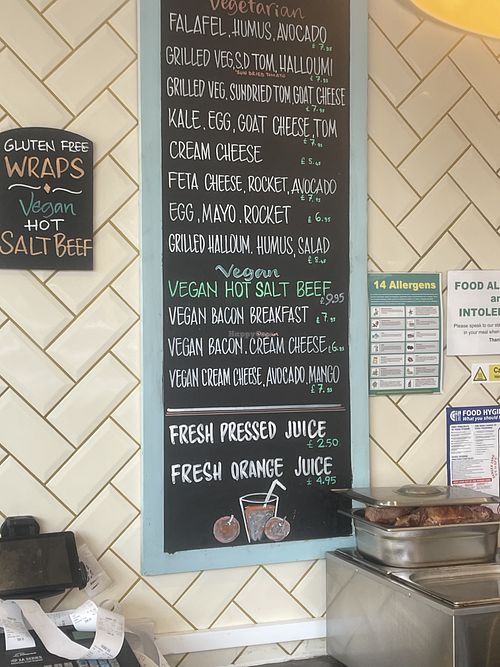 Vegetarian
FALAFEL, HUMUS, AVOCADO
£7.95
GRILLED VEG, S.D TOM, HALLOUMI
*SUN DRIED TOMATO
£7.95
GRILLED VEG, SUNDRIED TOM, GOAT CHEESE
£7.95
KALE, EGG, GOAT CHEESE, TOM
£7.95
CREAM CHEESE
FETA CHEESE, ROCKET, AVOCADO
£7.95
EGG, MAYO, ROCKET
£6.95
GRILLED HALLOUM, HUMUS, SALAD
Vegan
VEGAN HOT SALT BEEF
£9.95
VEGAN BACON BREAKFAST £7.95
VEGAN BACON, CREAM CHEESE £6.95
VEGAN CREAM CHEESE, AVOCADO, MANGO
£7.95
FRESH PRESSED JUICE
£2.50
FRESH ORANGE JUICE
£4.95
GLUTEN FREE
WRAPS
Vegan
HOT
SALT BEEF
14 Allergens
FOOD AL
an
INTOLE
Please speak to our sta
in your meal when
Than
FOOD HYGI
What you should
HappyCow